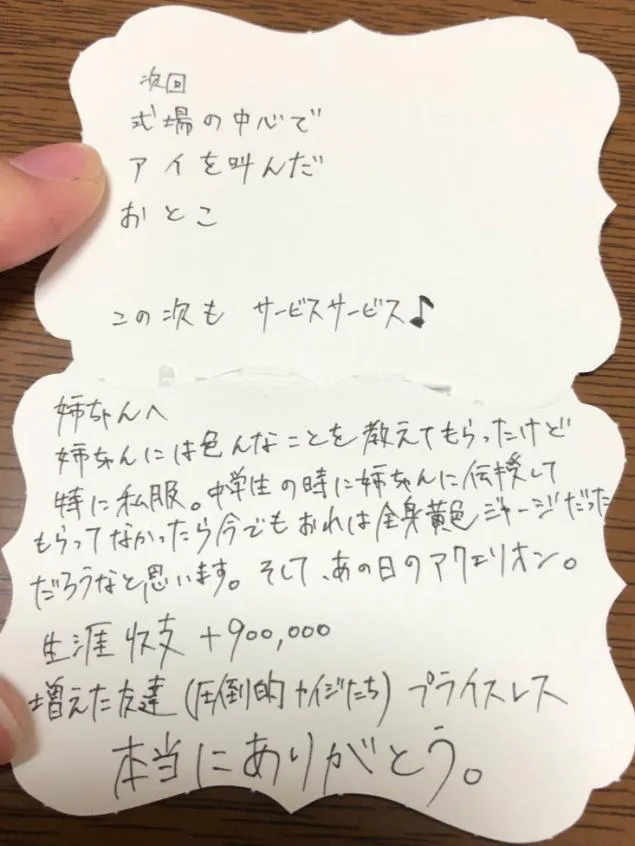 次回
式場の中心で
アイを叫んだ
おとこ
この次も サービスサービス♪
姉ちゃんへ
姉ちゃんには色んなことを教えてもらったけど
特に私服。中学生の時に姉ちゃんに伝授して
もらってなかったら今でもおれは全身黄色ジャージだった
だろうなと思います。そして、あの日のアクエリオン。
生涯収支 +900,000
増えた友達(圧倒的ナイジたち) プライスレス
本当にありがとう。